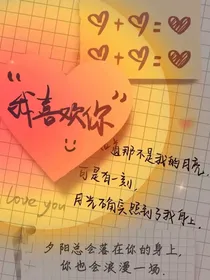 ♡ + ♡ = ♥
♡ + ♡ = ♥
“我喜欢你”
那不是我的月亮
可是有一刻
月光确实照到了我身上.
love you
夕阳总会落在你的身上,
你也会浪漫一场.